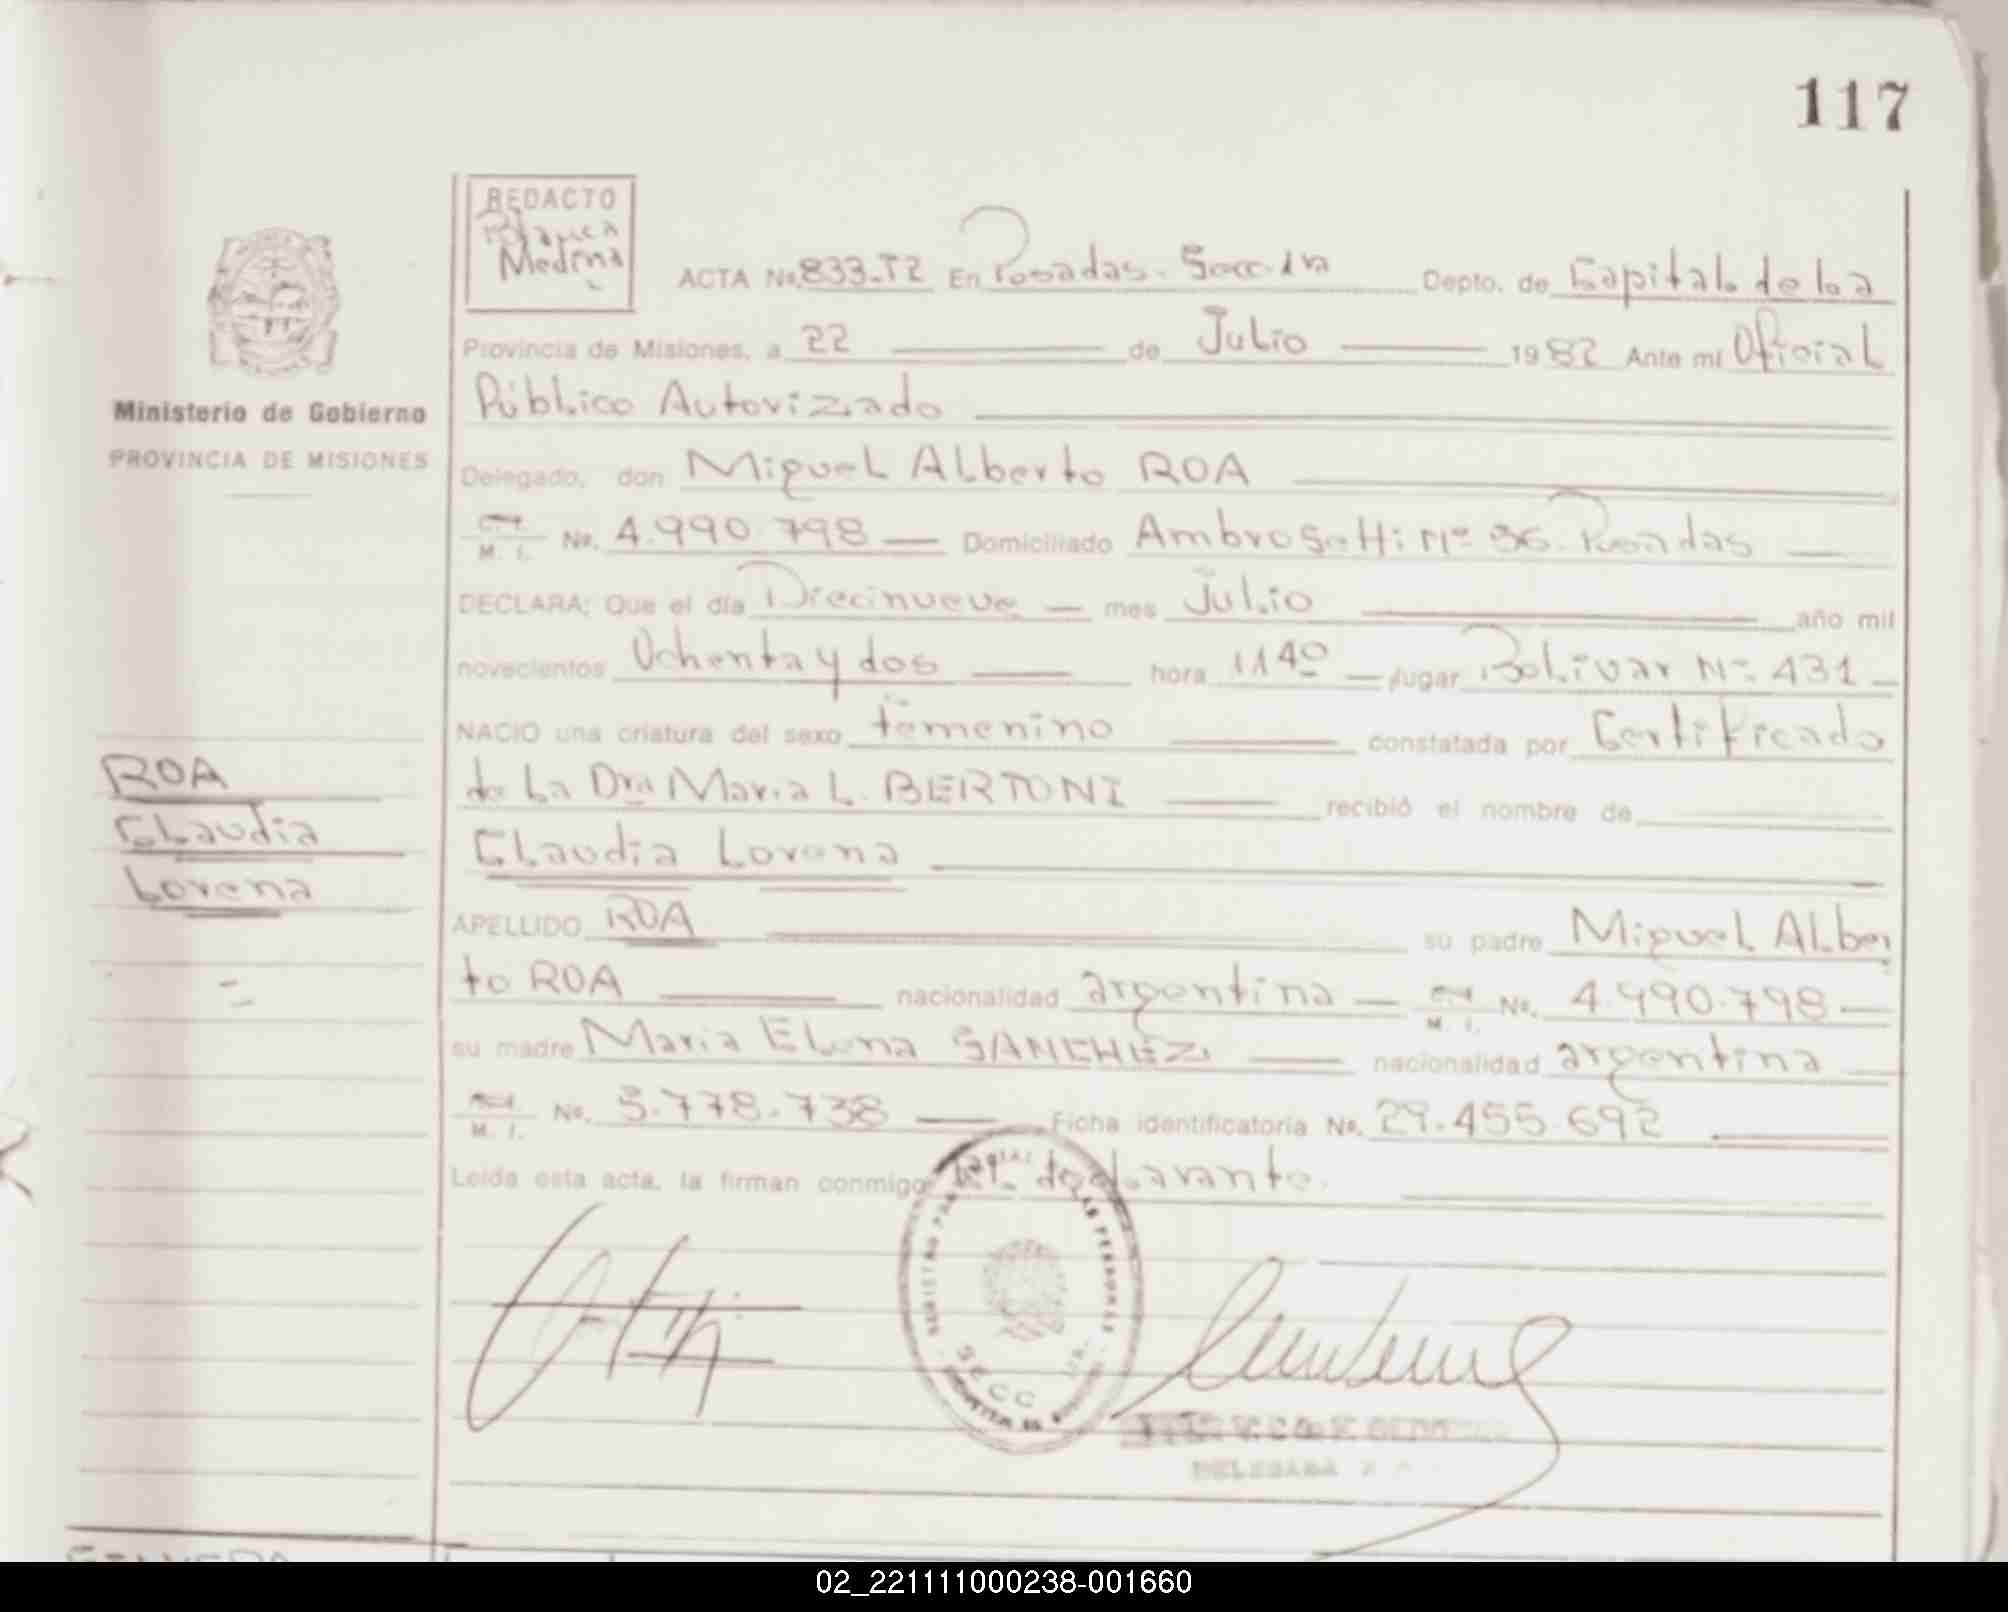 117
REDACTO
Blanca
Medina
ACTA No. 833-T2 En Posadas. Secc. 1ra Depto. de Capital de la
Provincia de Misiones, a 22 de Julio 1982 Ante mi Oficial
Público Autorizado
Delegado, don Miguel Alberto ROA
M. I. No. 4.990.798 Domiciliado Ambrosetti Nº 36. Posadas
DECLARA: Que el día Diecinueve mes Julio año mil
novecientos Ochenta y dos hora 11 40 lugar Bolivar Nº 431
NACIO una criatura del sexo femenino constatada por Certificado
de La Dra Maria L. BERTONI recibió el nombre de
Claudia Lorena
APELLIDO ROA su padre Miguel Alber
to ROA nacionalidad argentina M. I. No. 4.990.798
su madre Maria Elena SANCHEZ nacionalidad argentina
M. I. No. 5.778.738 Ficha identificatoria No. 29.455.692
Leída esta acta, la firman conmigo El declarante.
SECC
DELEGADA
Ministerio de Gobierno
PROVINCIA DE MISIONES
ROA
Claudia
Lorena
02_221111000238-001660